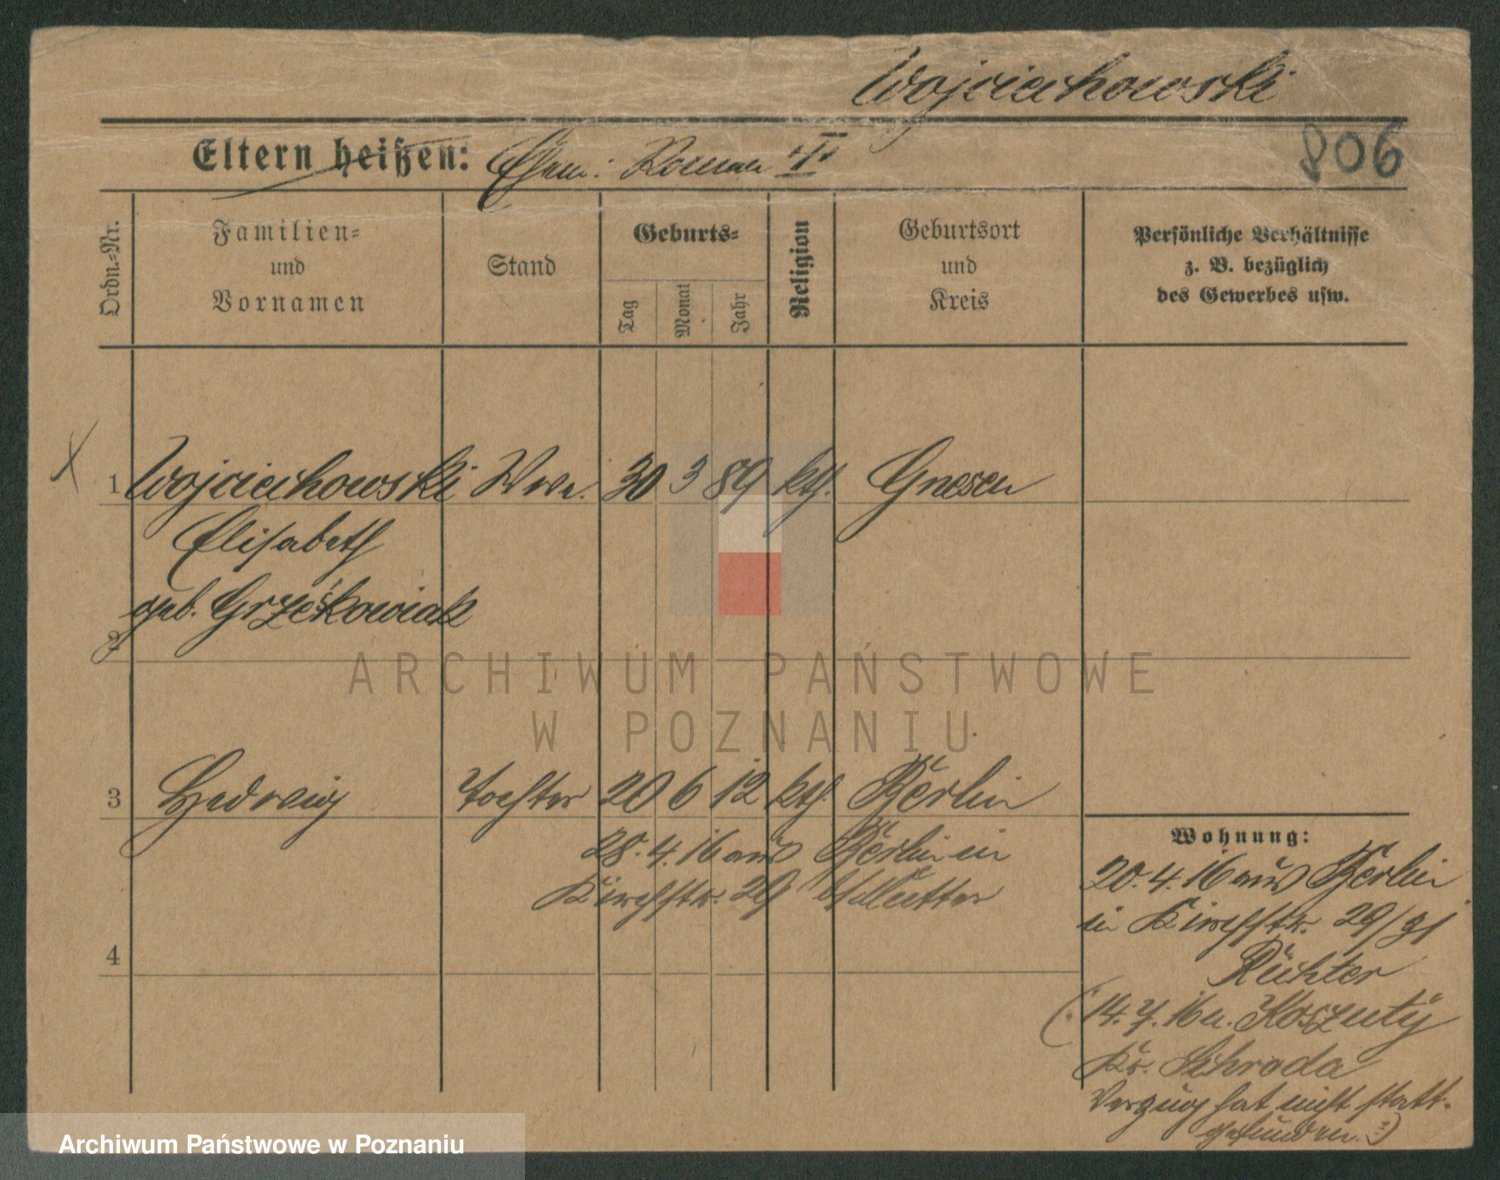 Wojciechowski
806
Eltern heißen: Ehem: Roman "†"
Ordn.-Nr.
Familien-
und
Vornamen
Stand
Geburts-
Tag
Monat
Jahr
Religion
Geburtsort
und
Kreis
Persönliche Verhältnisse
z. B. bezüglich
des Gewerbes usw.
1 Wojciechowski Wwe. 30 3 89 kth. Gnesen
Elisabeth
geb. Grześkowiak
2
3 Hedwig Tochter 20 6 12 kth. Berlin
28.4.16 aus Berlin in
Kirchstr. 29 Mutter
4
Wohnung:
20.4.16 aus Berlin
in Kirchstr. 29/
Richter
(14.7.16 n. Koszuty
Kr. Schroda
Verzug hat nicht statt-
gefunden.)
ARCHIWUM PAŃSTWOWE
W POZNANIU
Archiwum Państwowe w Poznaniu